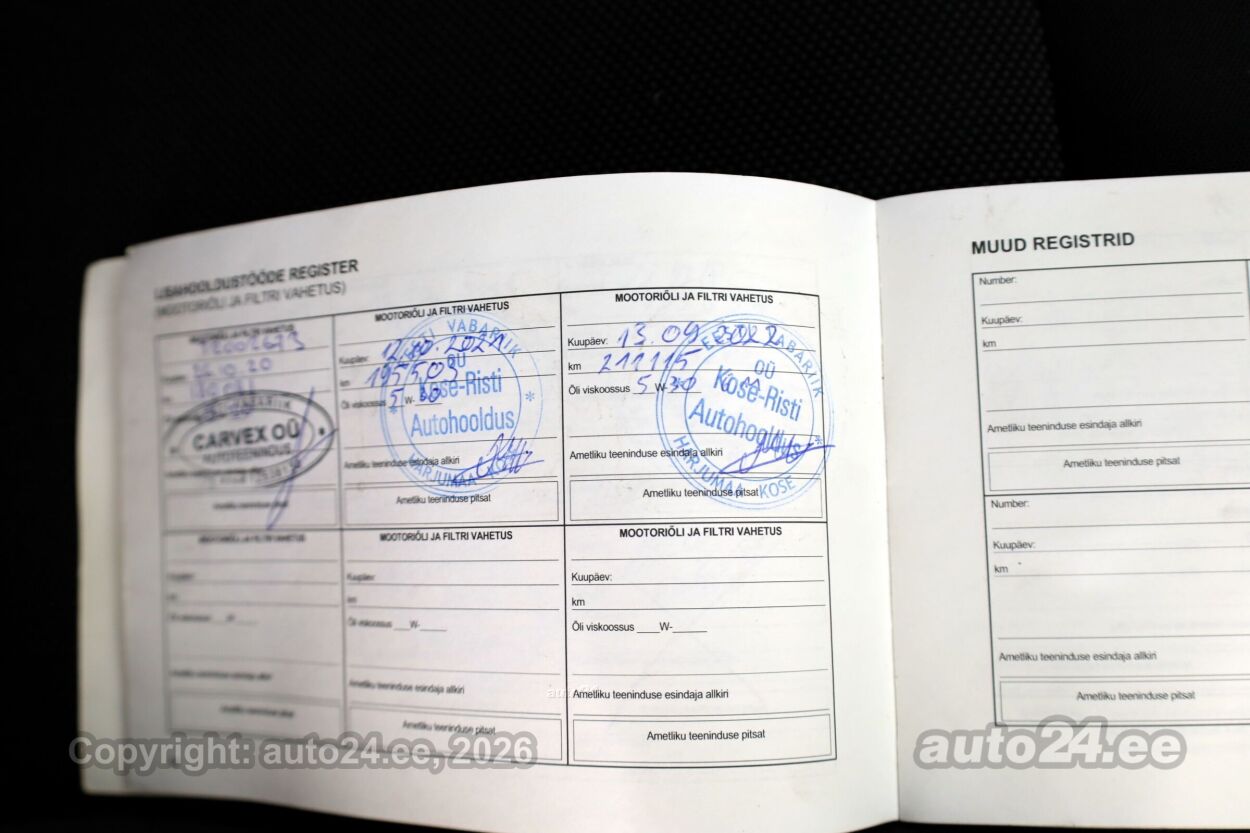 LISAHOOLDUSTÖÖDE REGISTER
(MOOTORIÕLI JA FILTRI VAHETUS)
CARVEX OÜ
AUTOTEENINDUS
MOOTORIÕLI JA FILTRI VAHETUS
Kuupäev: 12.10.2021
km 195503
Õli viskoossus 5 W- 30
EESTI VABARIIK
OÜ
Kose-Risti
Autohooldus
HARJUMAA KOSE
Ametliku teeninduse esindaja allkiri
Ametliku teeninduse pitsat
MOOTORIÕLI JA FILTRI VAHETUS
Kuupäev: 13.09.2022
km 211115
Õli viskoossus 5 W- 30
EESTI VABARIIK
OÜ
Kose-Risti
Autohooldus
HARJUMAA KOSE
Ametliku teeninduse esindaja allkiri
Ametliku teeninduse pitsat
MOOTORIÕLI JA FILTRI VAHETUS
Kuupäev:
km
Õli viskoossus ___W-_____
Ametliku teeninduse esindaja allkiri
Ametliku teeninduse pitsat
MOOTORIÕLI JA FILTRI VAHETUS
Kuupäev:
km
Õli viskoossus ____W-______
Ametliku teeninduse esindaja allkiri
Ametliku teeninduse pitsat
MUUD REGISTRID
Number:
Kuupäev:
km
Ametliku teeninduse esindaja allkiri
Ametliku teeninduse pitsat
Number:
Kuupäev:
km
Ametliku teeninduse esindaja allkiri
Ametliku teeninduse pitsat
Copyright: auto24.ee, 2026
auto24.ee